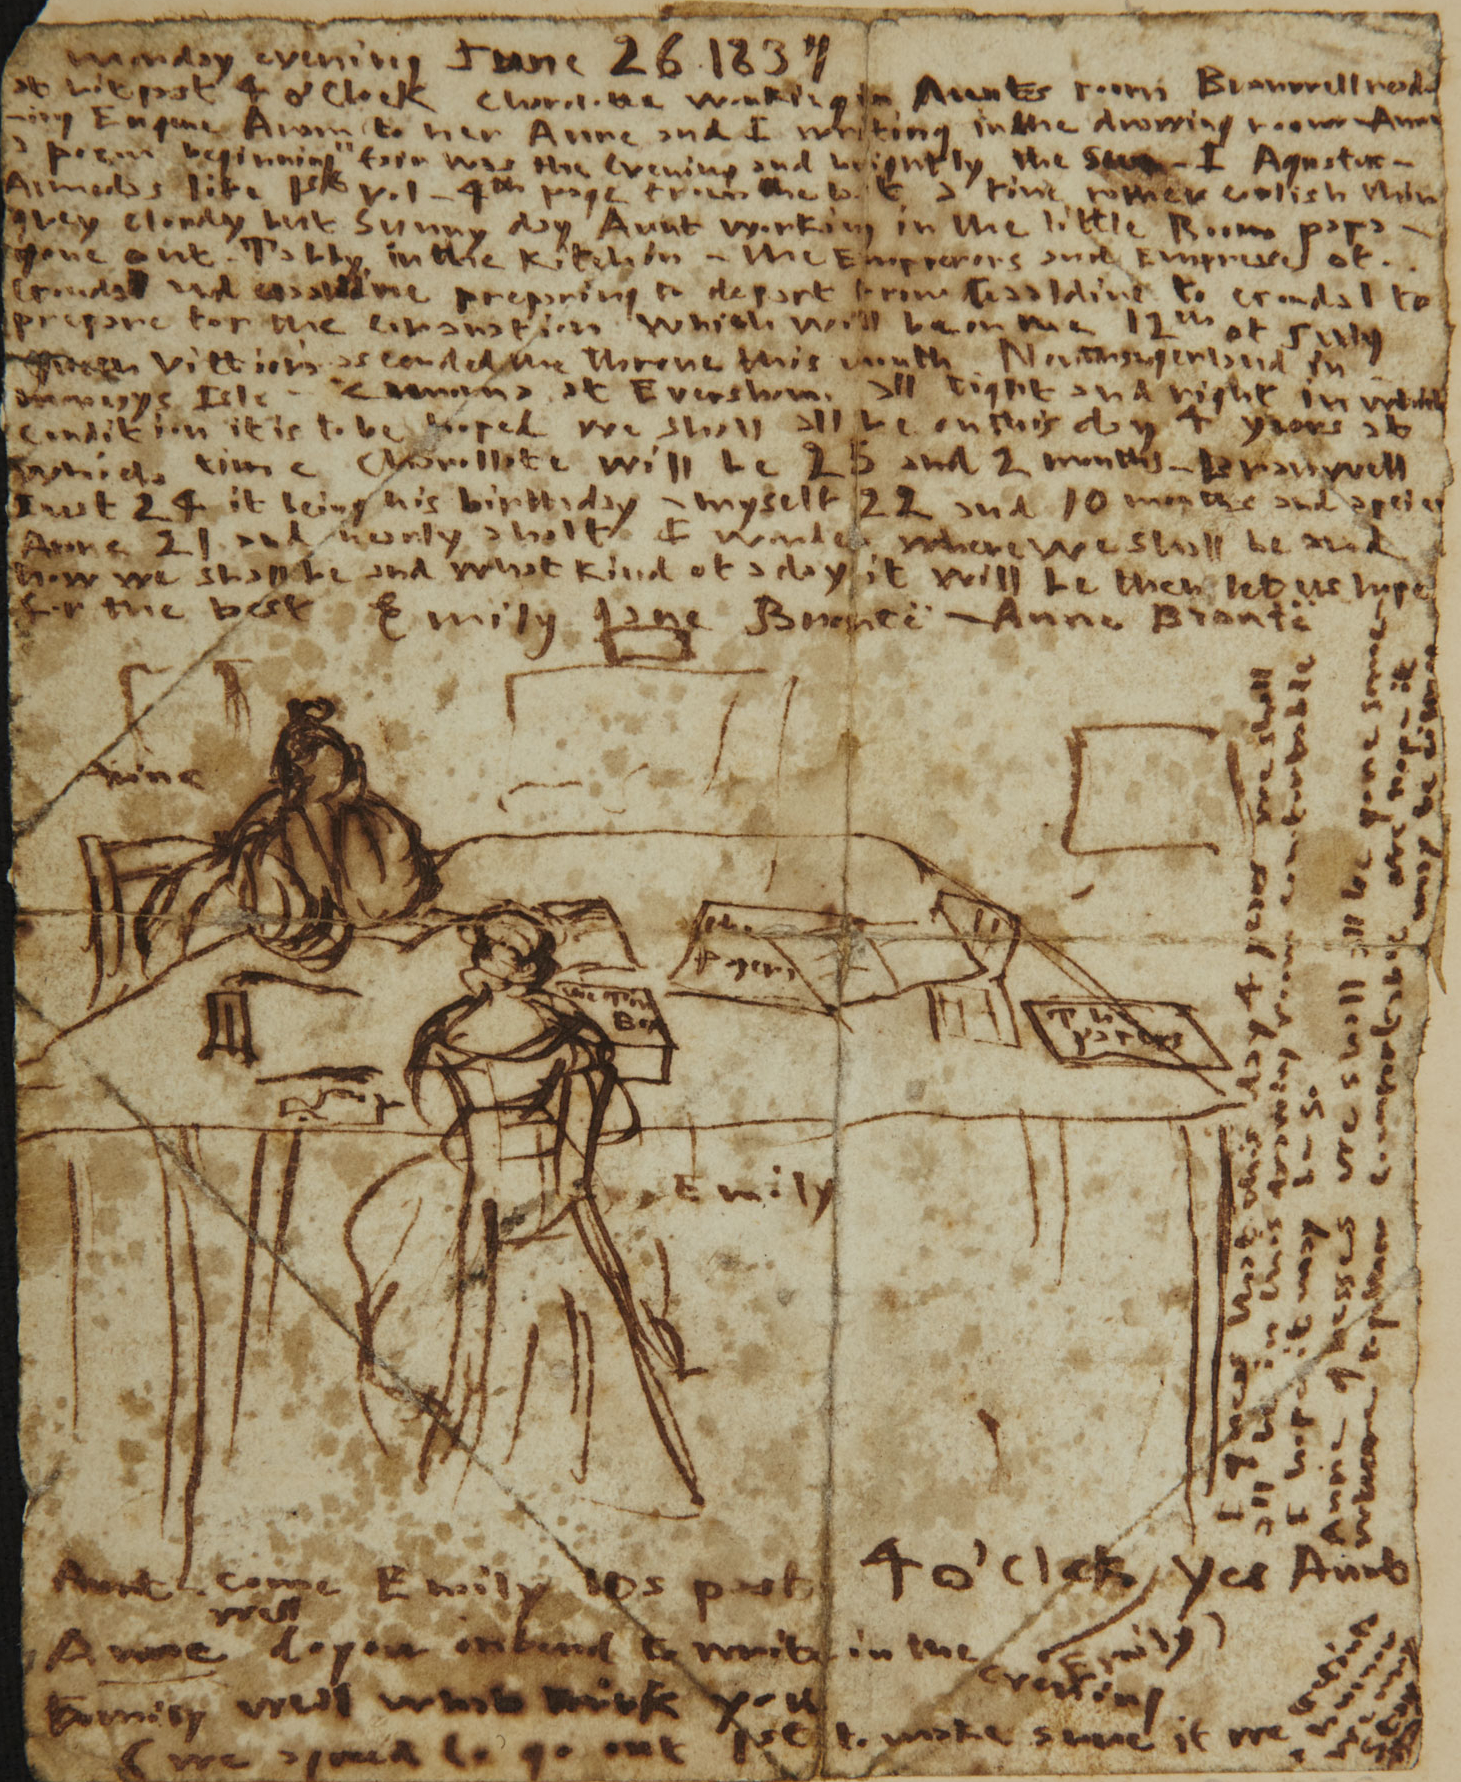 monday evening June 26 1837
at hitpast 4 o'Clock Charlotte working in Aunts room Branwell reada
-ing Eugene Aram to her Anne and I writing in the drawing room Anne
a poem beginning "fair was the Evening and brightly the Sun - I Agustus -
Almedas life 1st vol - 4th page from the a fine rather coolish thin
grey cloudy but Sunny day Aunt working in the little Room papa -
gone out. Tabby in the Kitchin - the Emperors and Empresses of
Gondal and Gaaldine preparing to depart from Gaaldine to Gondal to
prepare for the coranation which will be on the 12th of July
Queen Vittoria ascended the throne this month Northangerland in
Monceys Isle - Zamorna at Eversham. all tight and right in which
condition it is to be hoped we shall all be on this day 4 years at
which time Charollote will be 25 and 2 months - Branwell
Just 24 it being his birthday - myself 22 and 10 months and a peice
Anne 21 and nearly a half I wonder where we shall be and
how we shall be and what kind of a day it will be then let us hope
for the best Emily Jane Brontë - Anne Brontë
Anne
The
papers
The Tin
Box
The
papers
Emily
I guess that this day 4 years we shall
all be in this drawing room comfortable
I hope it may be so.
Anne guesses we shall all be gone some
where together comfortable we hope it
may be
Aunt. come Emily Its past 4 o'Clock Yes Aunt
Emily)
Anne well do you intend to write in the
evening
Emily well what think you
(we agreed to go out 1st to make sure it we